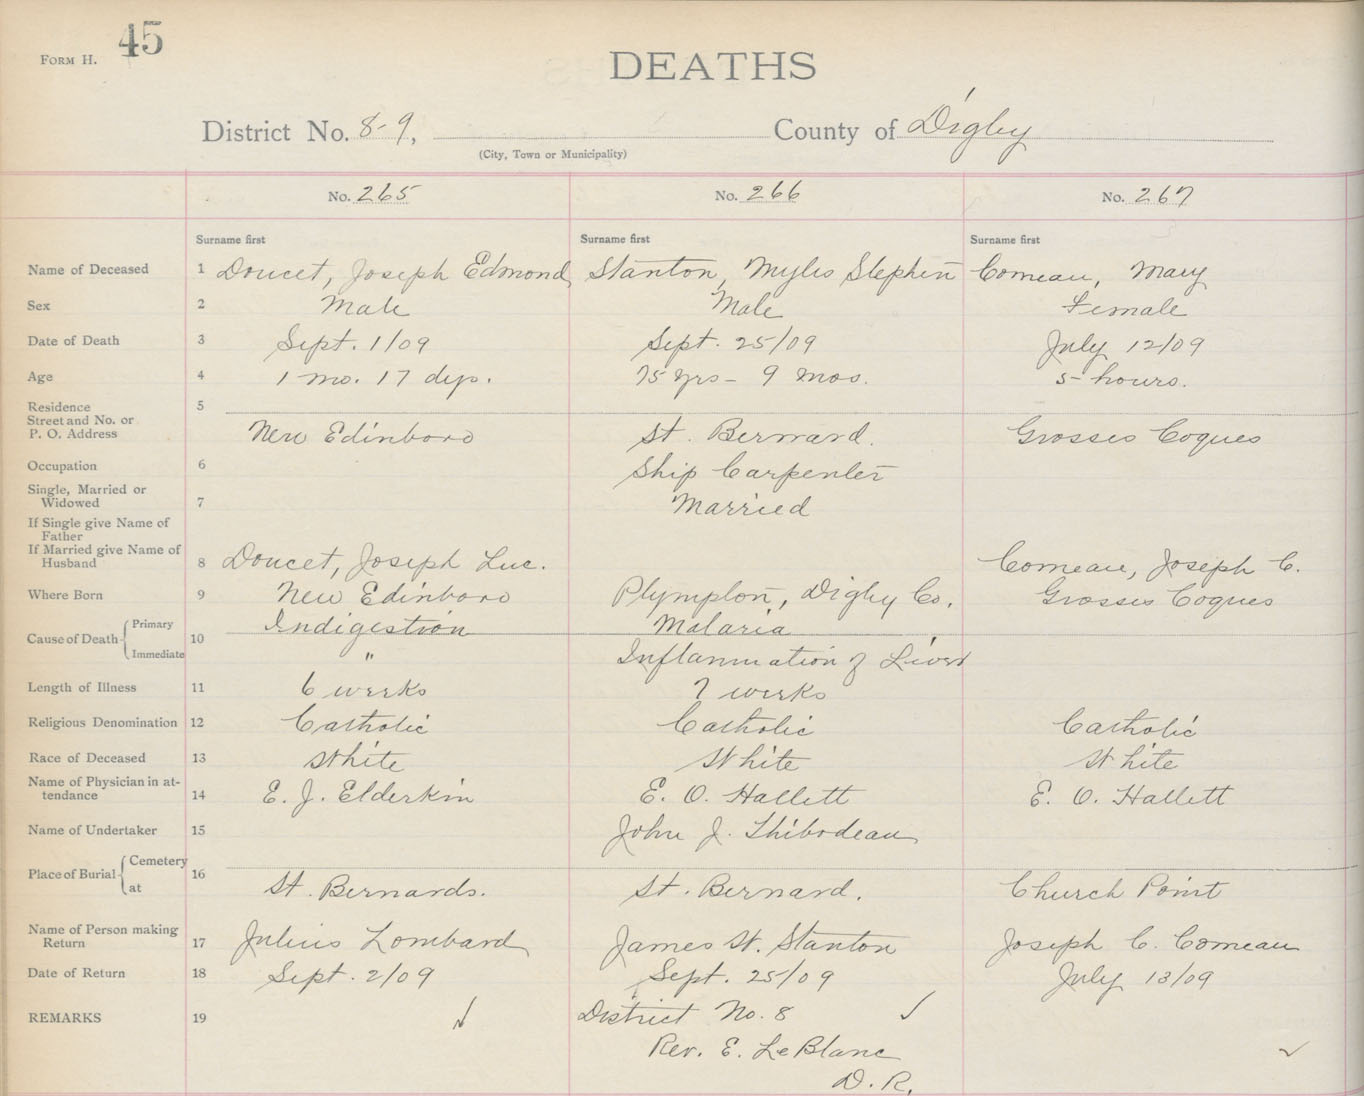 FORM H. 45
DEATHS
District No. 8-9, County of Digby
(City, Town or Municipality)
No. 265 No. 266 No. 267
Surname first Surname first Surname first
Name of Deceased 1 Doucet, Joseph Edmond Stanton, Myles Stephen Comeau, Mary
Sex 2 Male Male Female
Date of Death 3 Sept. 1/09 Sept. 25/09 July 12/09
Age 4 1 mo. 17 dys. 75 yrs - 9 mos. 5 hours.
Residence 5
Street and No. or
P. O. Address New Edinboro St. Bernard. Grosses Coques
Occupation 6 Ship Carpenter
Single, Married or
Widowed 7 Married
If Single give Name of
Father
If Married give Name of
Husband 8 Doucet, Joseph Luc. Comeau, Joseph C.
Where Born 9 New Edinboro Plympton, Digby Co. Grosses Coques
Cause of Death Primary 10 Indigestion Malaria
Immediate " Inflammation of Liver
Length of Illness 11 6 weeks 7 weeks
Religious Denomination 12 Catholic Catholic Catholic
Race of Deceased 13 White White White
Name of Physician in at-
tendance 14 E. J. Elderkin E. O. Hallett E. O. Hallett
Name of Undertaker 15 John J. Thibodeau
Place of Burial Cemetery 16
at St. Bernards. St. Bernard. Church Point
Name of Person making
Return 17 Julius Lombard James W. Stanton Joseph C. Comeau
Date of Return 18 Sept. 2/09 Sept. 25/09 July 13/09
REMARKS 19 District No. 8
Rev. E. LeBlanc
D. R.